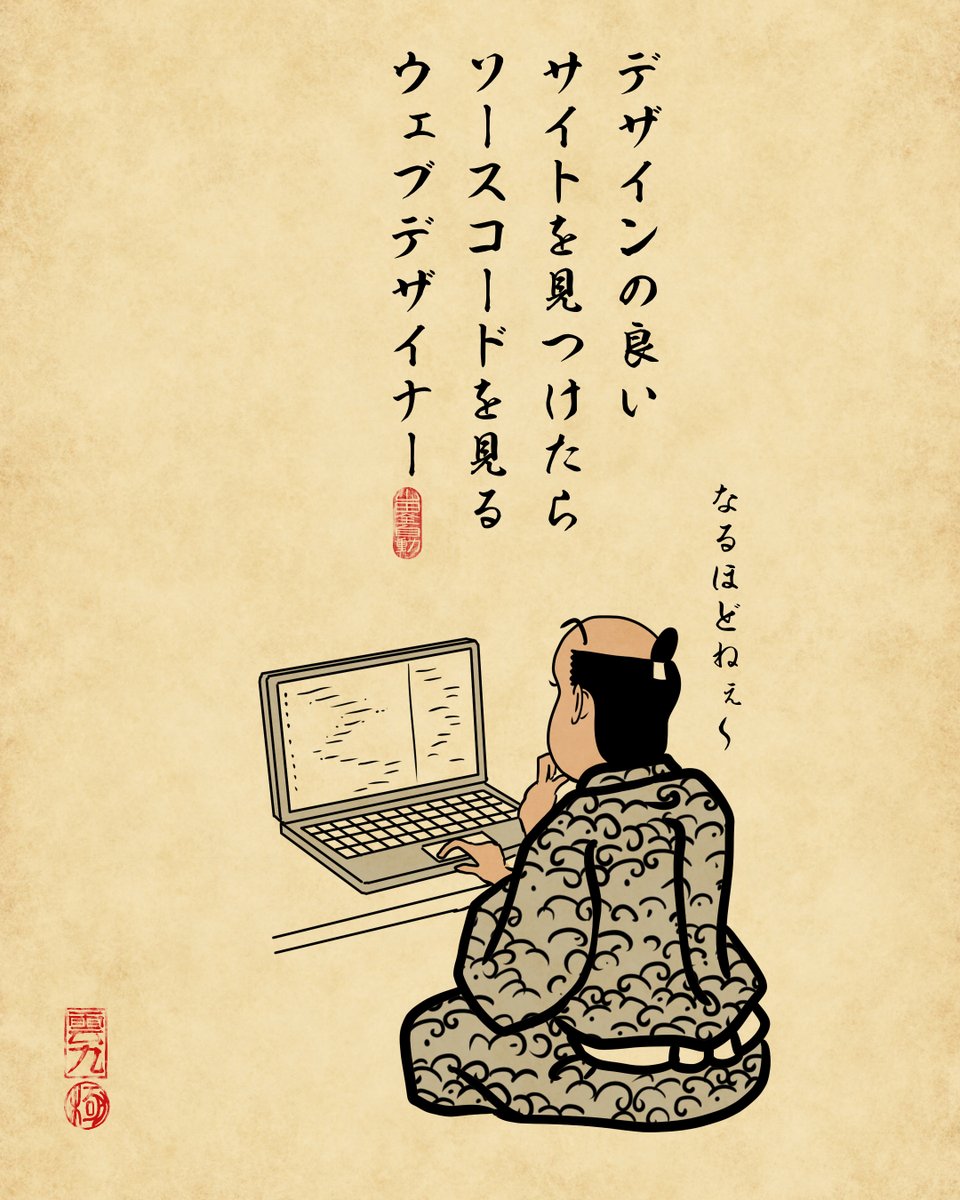 デザインの良い
サイトを見つけたら
ソースコードを見る
ウェブデザイナー
なるほどねぇ〜